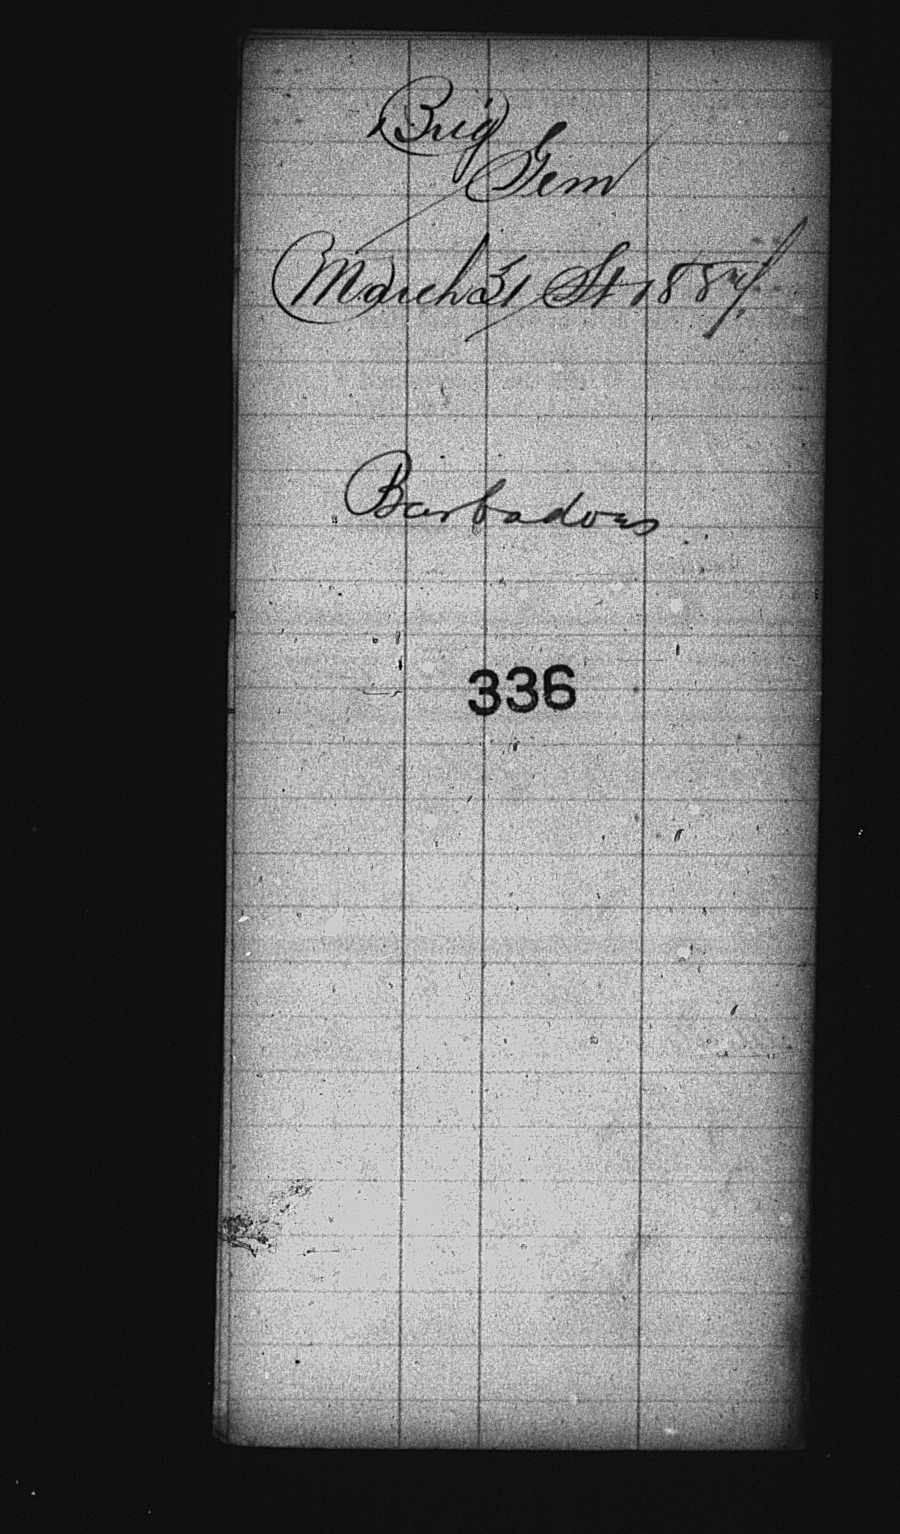 Brig
Gem
March 31 St 1884
Barbadoes
336